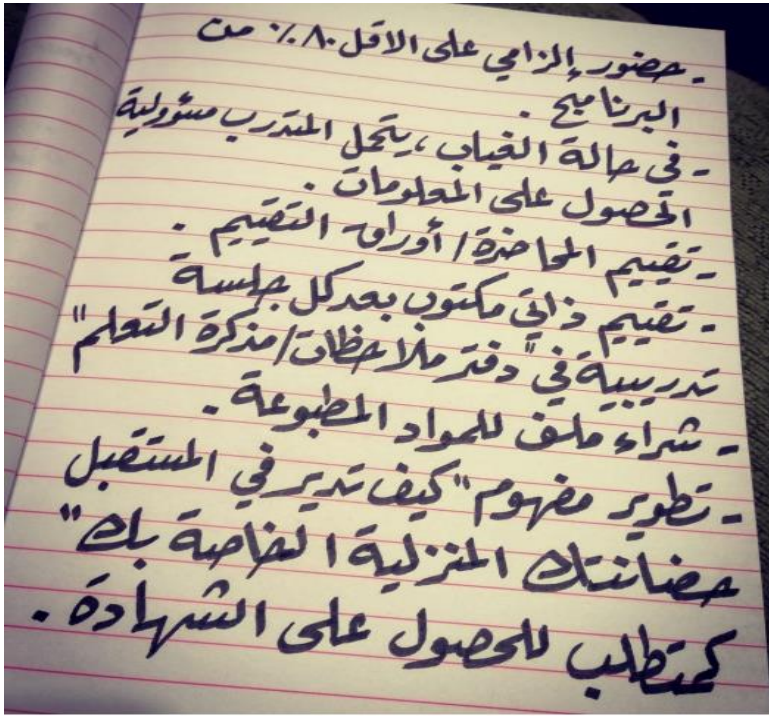 - حضور إلزامي على الاقل ٨٠٪ من
البرنامج .
- في حالة الغياب ، يتحمل المتدرب مسؤولية
الحصول على المعلومات .
- تقييم المحاضرة / أوراق التقييم .
- تقييم ذاتي مكتوب بعد كل جلسة
تدريبية في " دفتر ملاحظات / مذكرة التعلم "
- شراء ملف للمواد المطبوعة .
- تطوير مفهوم " كيف تدير في المستقبل
حضانتك المنزلية الخاصة بك "
كمتطلب للحصول على الشهادة .